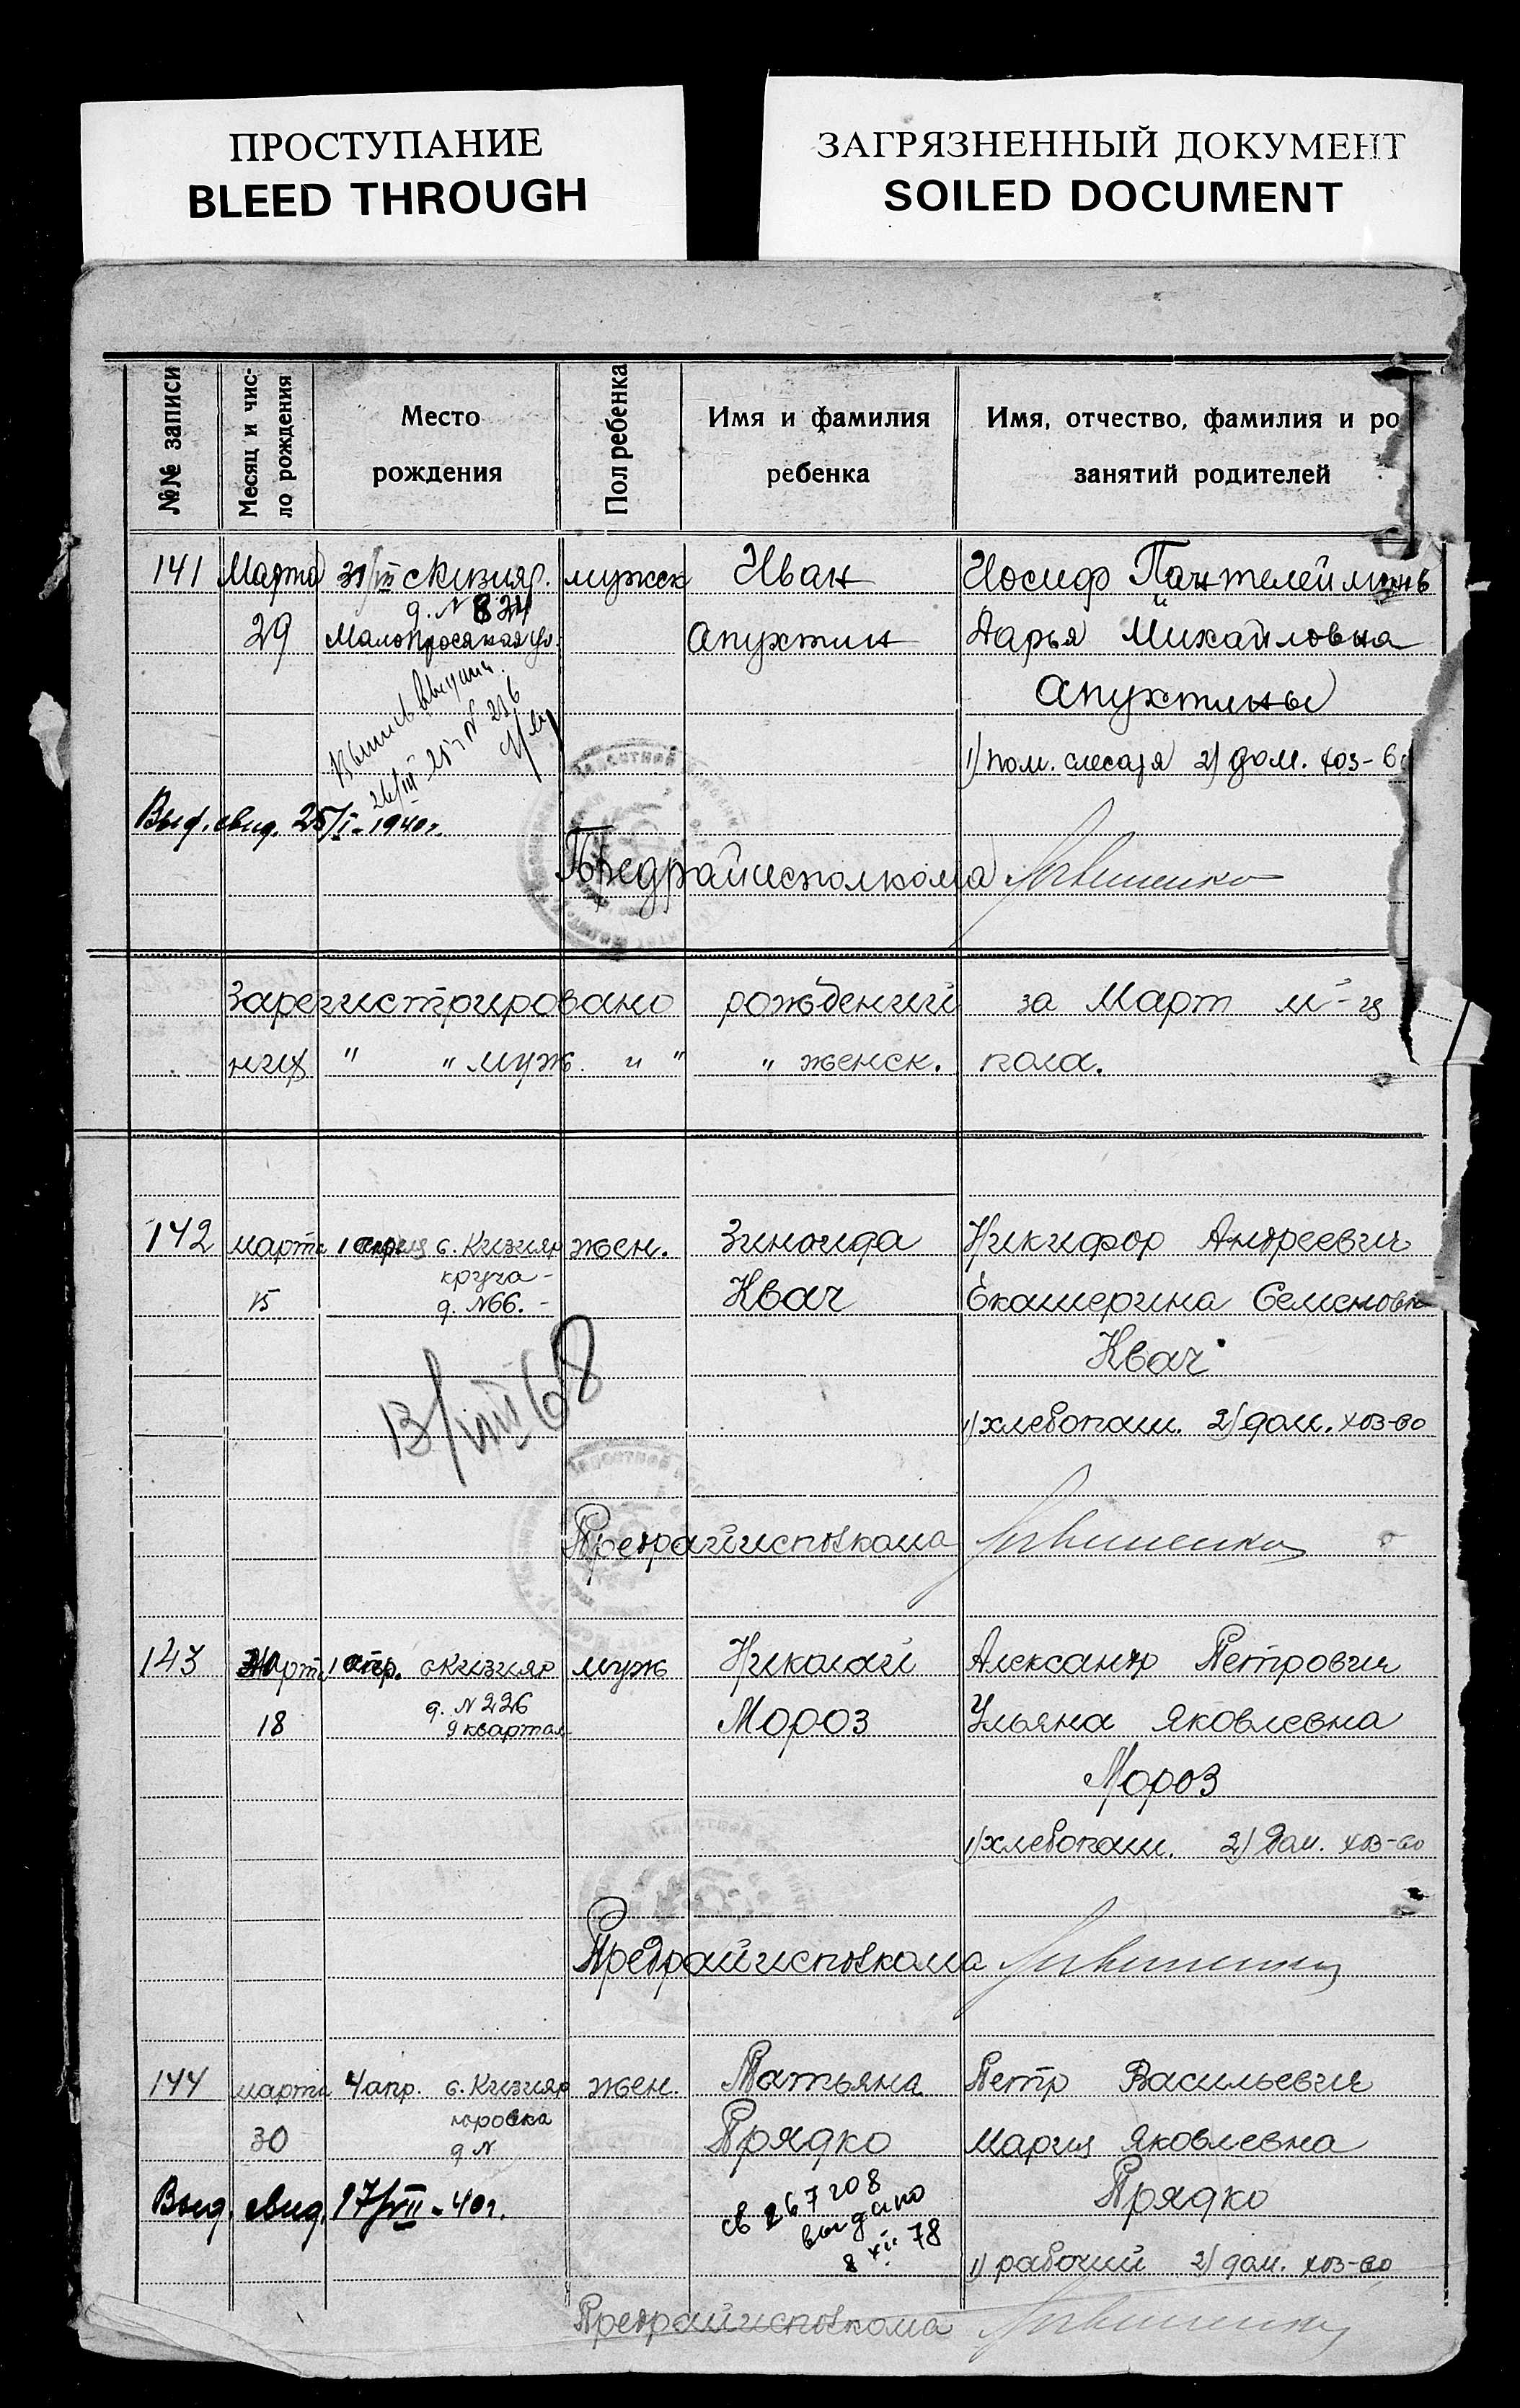 ПРОСТУПАНИЕ
BLEED THROUGH
ЗАГРЯЗНЕННЫЙ ДОКУМЕНТ
SOILED DOCUMENT
№№ записи
Месяц и чис-
ло рождения
Место
рождения
Пол ребенка
Имя и фамилия
ребенка
Имя, отчество, фамилия и ро
занятий родителей
141 Марта 31/III с Кизияр. мужск Иван Иосиф Пантелеймонов
д. N 824
29 Апухтин Дарья Михайловна
Апухтины
26/III 25 г N 216
1) пом. слесаря 2) дом. хоз-во
Выд. свид. 25/I-1940г.
Предрайисполкома
Зарегистрировано рождений за Март м-ц
них " " муж. и " " женск. пола.
142 марта 1 апреля с. Кизияр жен. Зиноида Никифор Андреевич
круча -
15 д. N66. - Квач Екатерина Семеновна
Квач
13/VIII 68
1) хлебопаш. 2) дом. хоз-во
Предрайисполкома
143 Марта 1 апр. с Кизияр муж Николай Александр Петрович
д. N 226
18 9 квартал Мороз Ульяна Яковлевна
Мороз
1) хлебопаш. 2) дом. хоз-во
Предрайисполкома
144 марта 4 апр. с. Кизияр жен. Татьяна Петр Васильевич
юровка
30 д N Прядко Мария Яковлевна
Выд. свид. 17/VII-40г. Прядко
св 267208
выдано
8 XII 78
1) рабочий 2) дом. хоз-во
Предрайисполкома